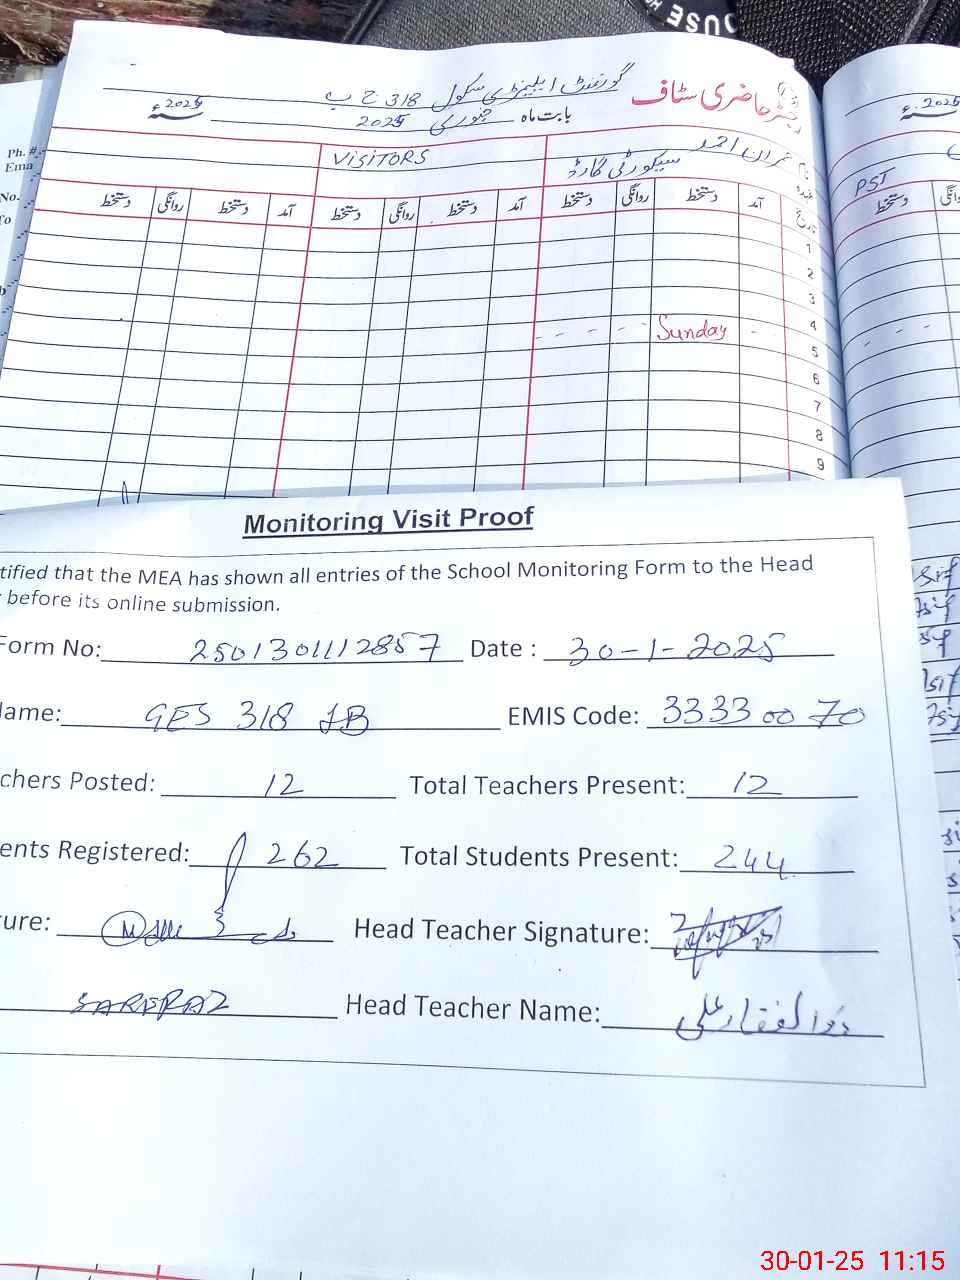 OUSE
رجسٹر حاضری سٹاف
گورنمنٹ ایلیمنٹری سکول 318 ج ب
بابت ماہ جنوری 2025
2025ء
2025ء
Ph. #
Ema
No.
To
عمران احمد
VISITORS
سیکورٹی گارڈ
PST
تاریخ آمد دستخط روانگی دستخط آمد دستخط روانگی دستخط آمد دستخط روانگی دستخط
دستخط
1
2
3
4 - Sunday - - - -
5
6
7
8
9
Monitoring Visit Proof
tified that the MEA has shown all entries of the School Monitoring Form to the Head
before its online submission.
Form No: 2501301112857 Date : 30-1-2025
Name: GES 318 JB EMIS Code: 33330070
chers Posted: 12 Total Teachers Present: 12
ents Registered: 262 Total Students Present: 244
ture: Head Teacher Signature:
SARFRAZ Head Teacher Name: ذوالفقار علی
30-01-25 11:15